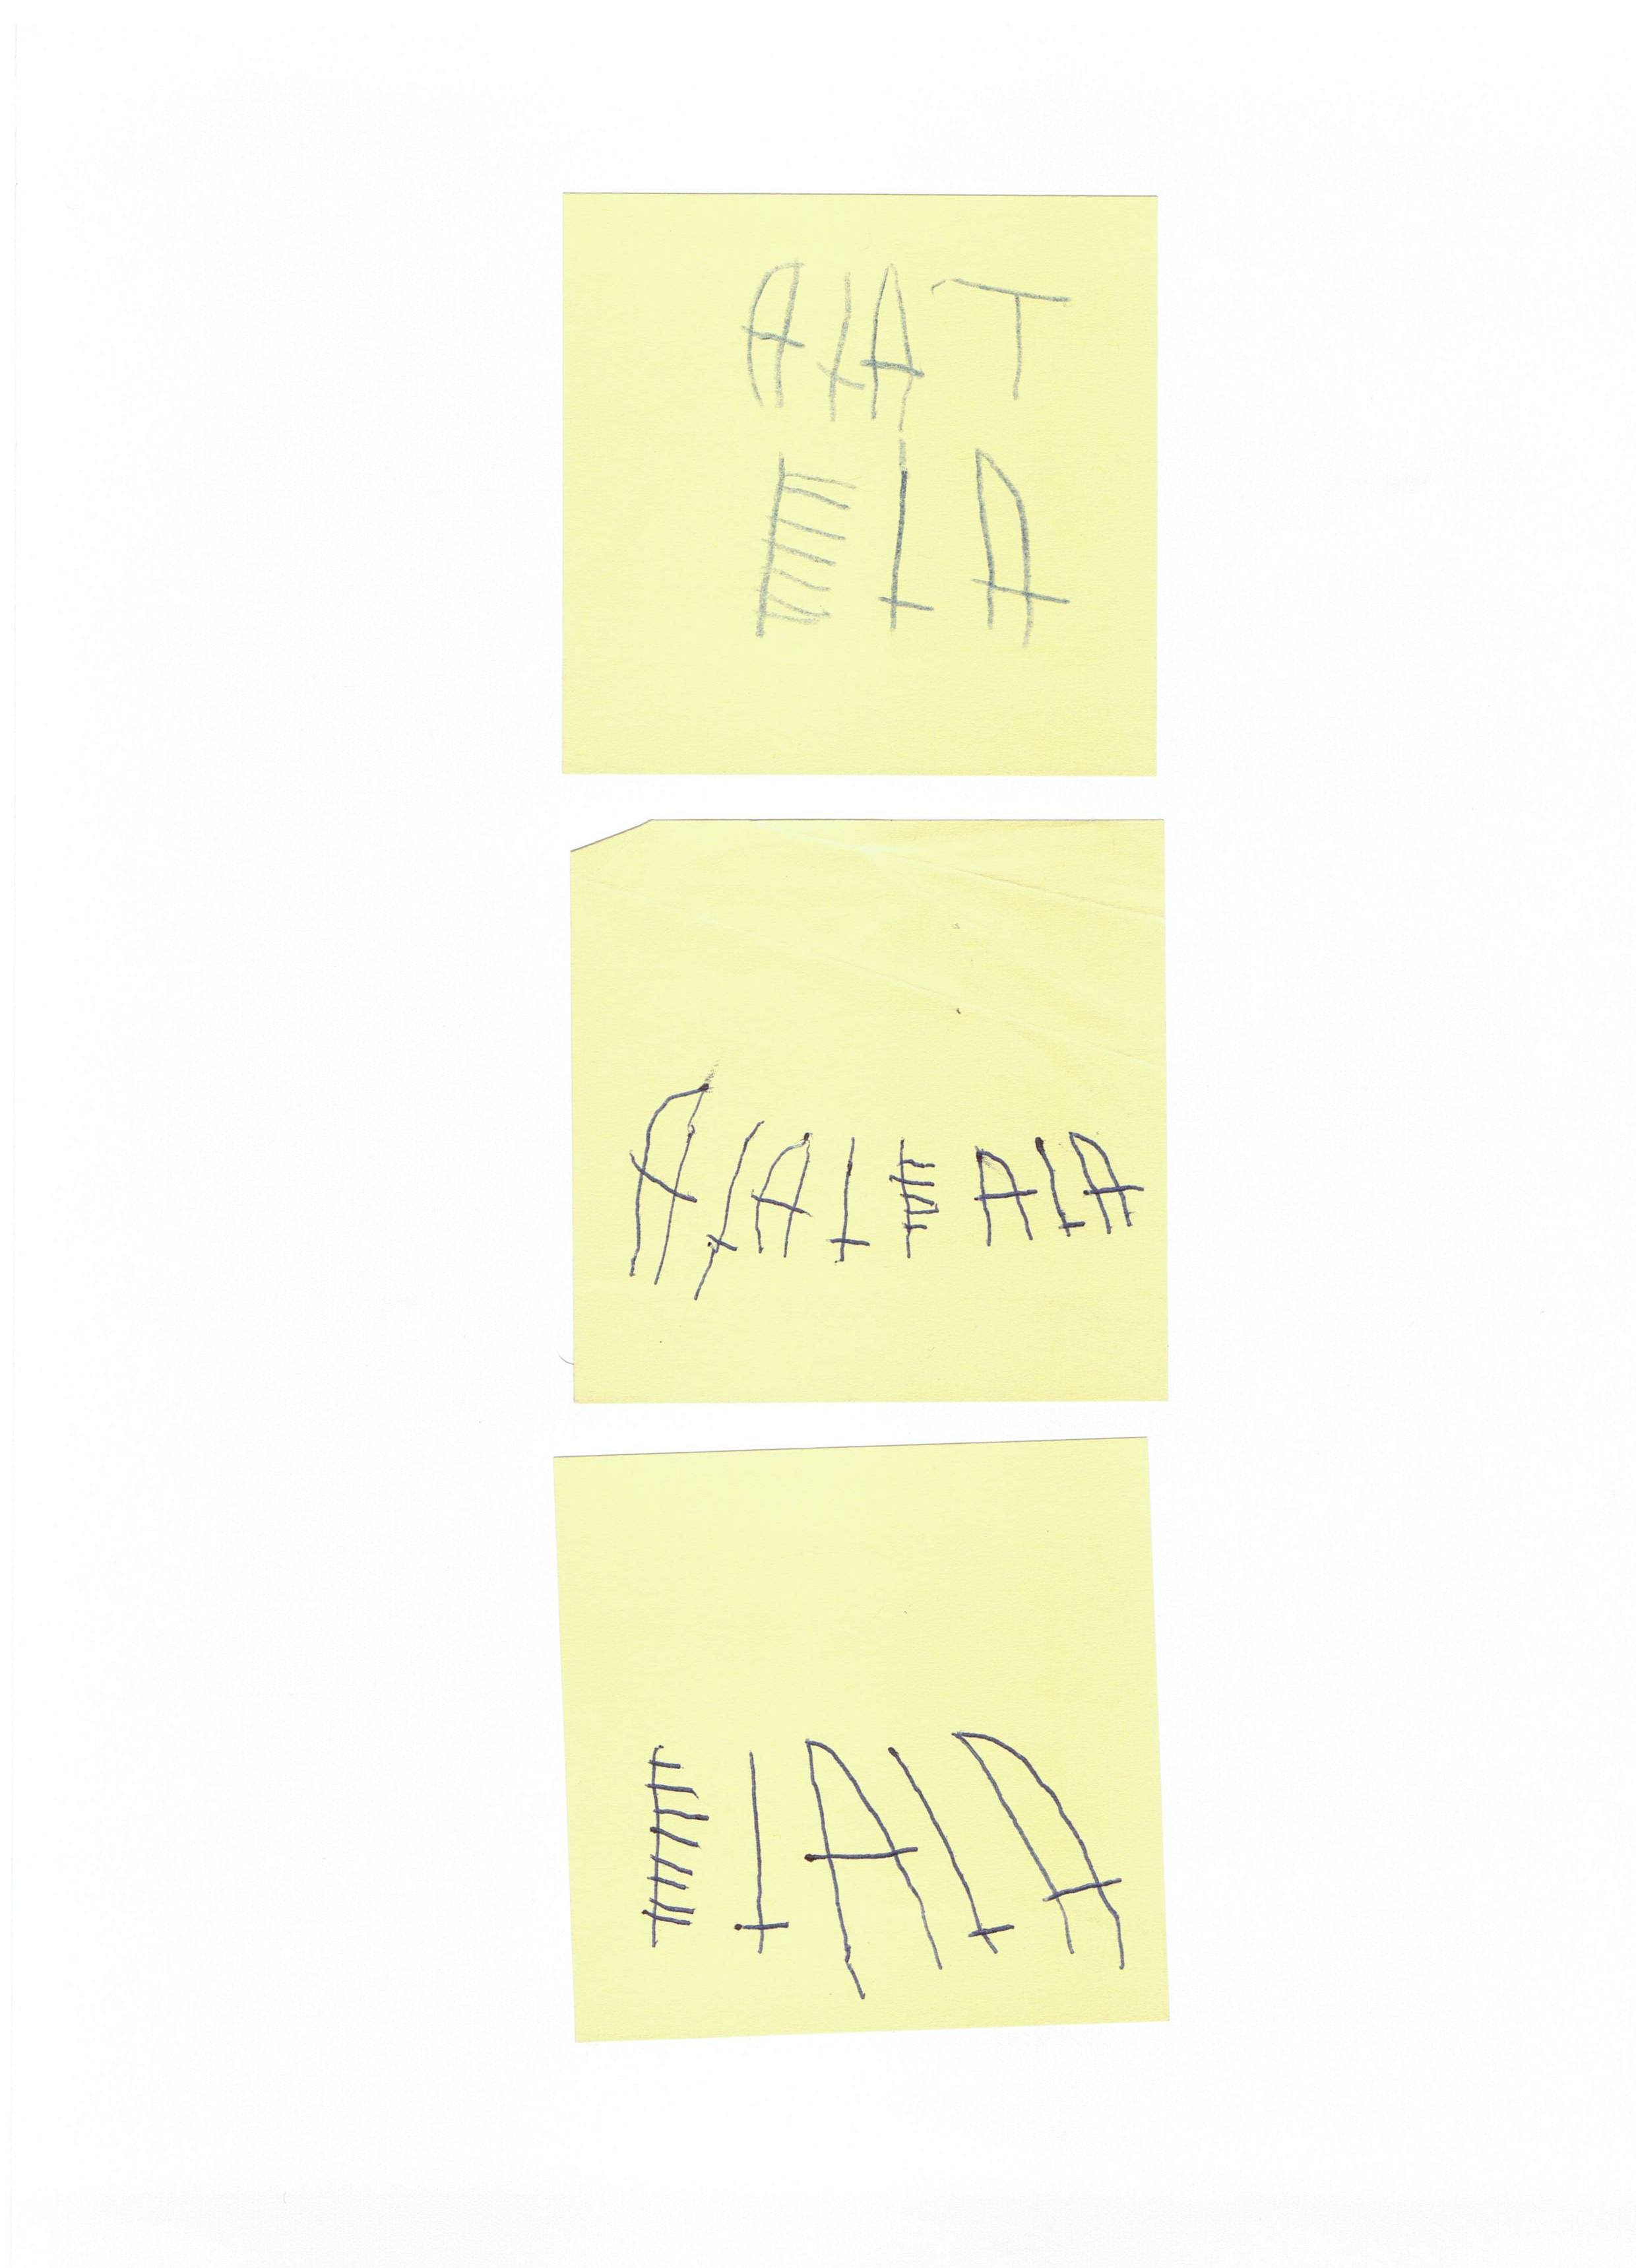 ALAT
ELA
ALALEALA
ELALA